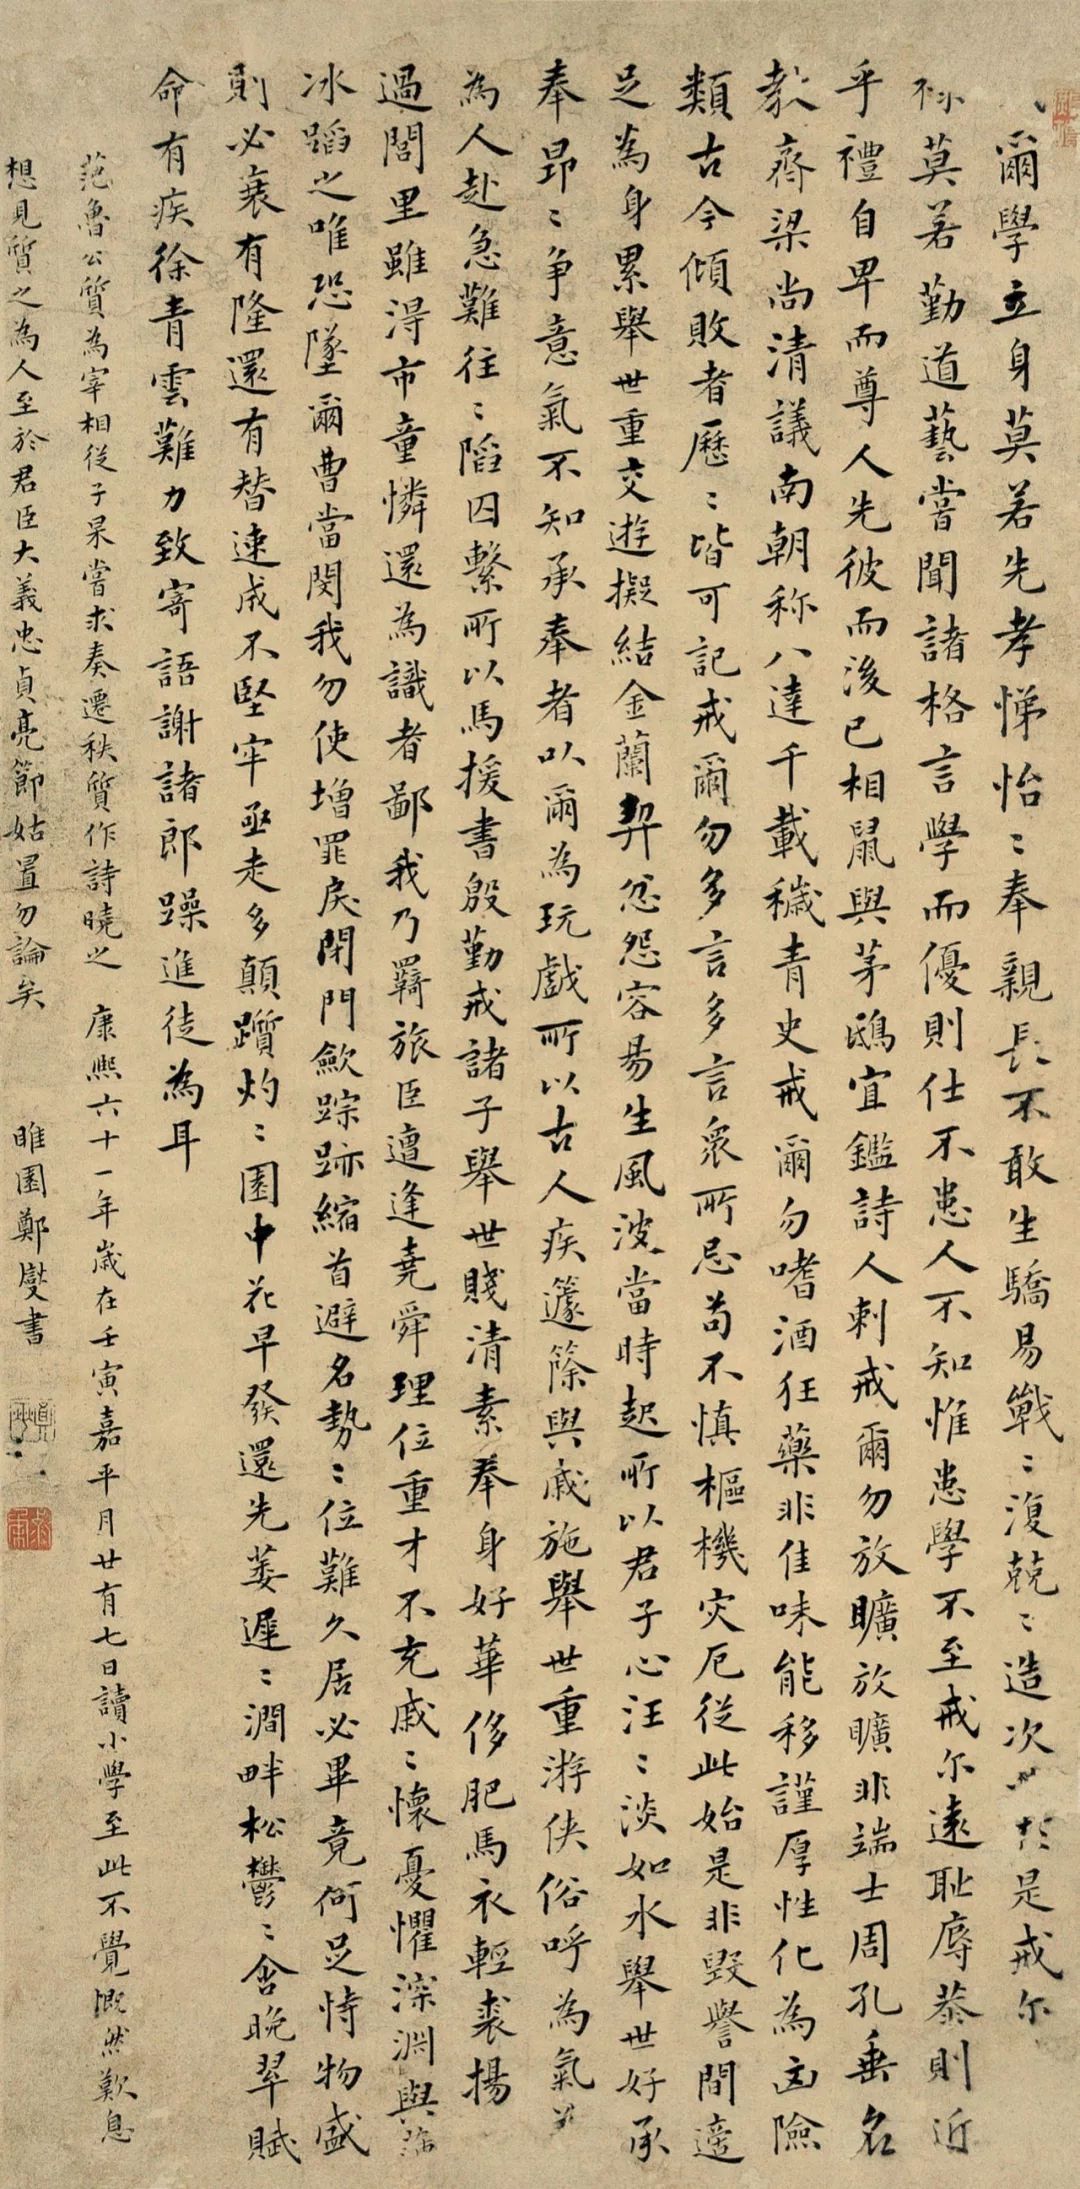 爾學立身莫若先孝悌怡〻奉親長不敢生驕易戰〻復兢〻造次於是戒尔
祿莫若勤道藝嘗聞諸格言學而優則仕不患人不知惟患學不至戒尔遠恥辱恭則近
乎禮自卑而尊人先彼而後己相鼠與茅鴟宜鑑詩人刺戒爾勿放曠放曠非端士周孔垂名
教齊梁尚清議南朝称八達千載穢青史戒爾勿嗜酒狂藥非佳味能移謹厚性化為凶險
類古今傾敗者歷〻皆可記戒爾勿多言多言衆所忌苟不慎樞機灾厄從此始是非毀譽間適
足為身累舉世重交遊擬結金蘭契忿怨容易生風波當時起所以君子心汪〻淡如水舉世好承
奉昻〻爭意氣不知承奉者以爾為玩戲所以古人疾籧篨與戚施舉世重游俠俗呼為氣
為人赴急難往〻陷囚繫所以馬援書殷勤戒諸子舉世賤清素奉身好華侈肥馬衣輕裘揚
過閭里雖得市童憐還為識者鄙我乃羇旅臣遭逢堯舜理位重才不充戚〻懷憂懼深淵與
冰蹈之唯恐墜爾曹當閔我勿使增罪戾閉門歛踪跡縮首避名勢〻位難久居必畢竟何足恃物盛
則必衰有隆還有替速成不堅牢亟走多顛躓灼〻園中花早發還先萎遲〻澗畔松鬱〻含晚翠賦
命有疾徐青雲難力致寄語謝諸郎躁進徒為耳
范魯公質為宰相從子杲嘗求奏遷秩質作詩曉之 康熙六十一年歲在壬寅嘉平月廿有七日讀小學至此不覺慨然歎息
想見質之為人至於君臣大義忠貞亮節姑置勿論矣 睢園鄭燮書